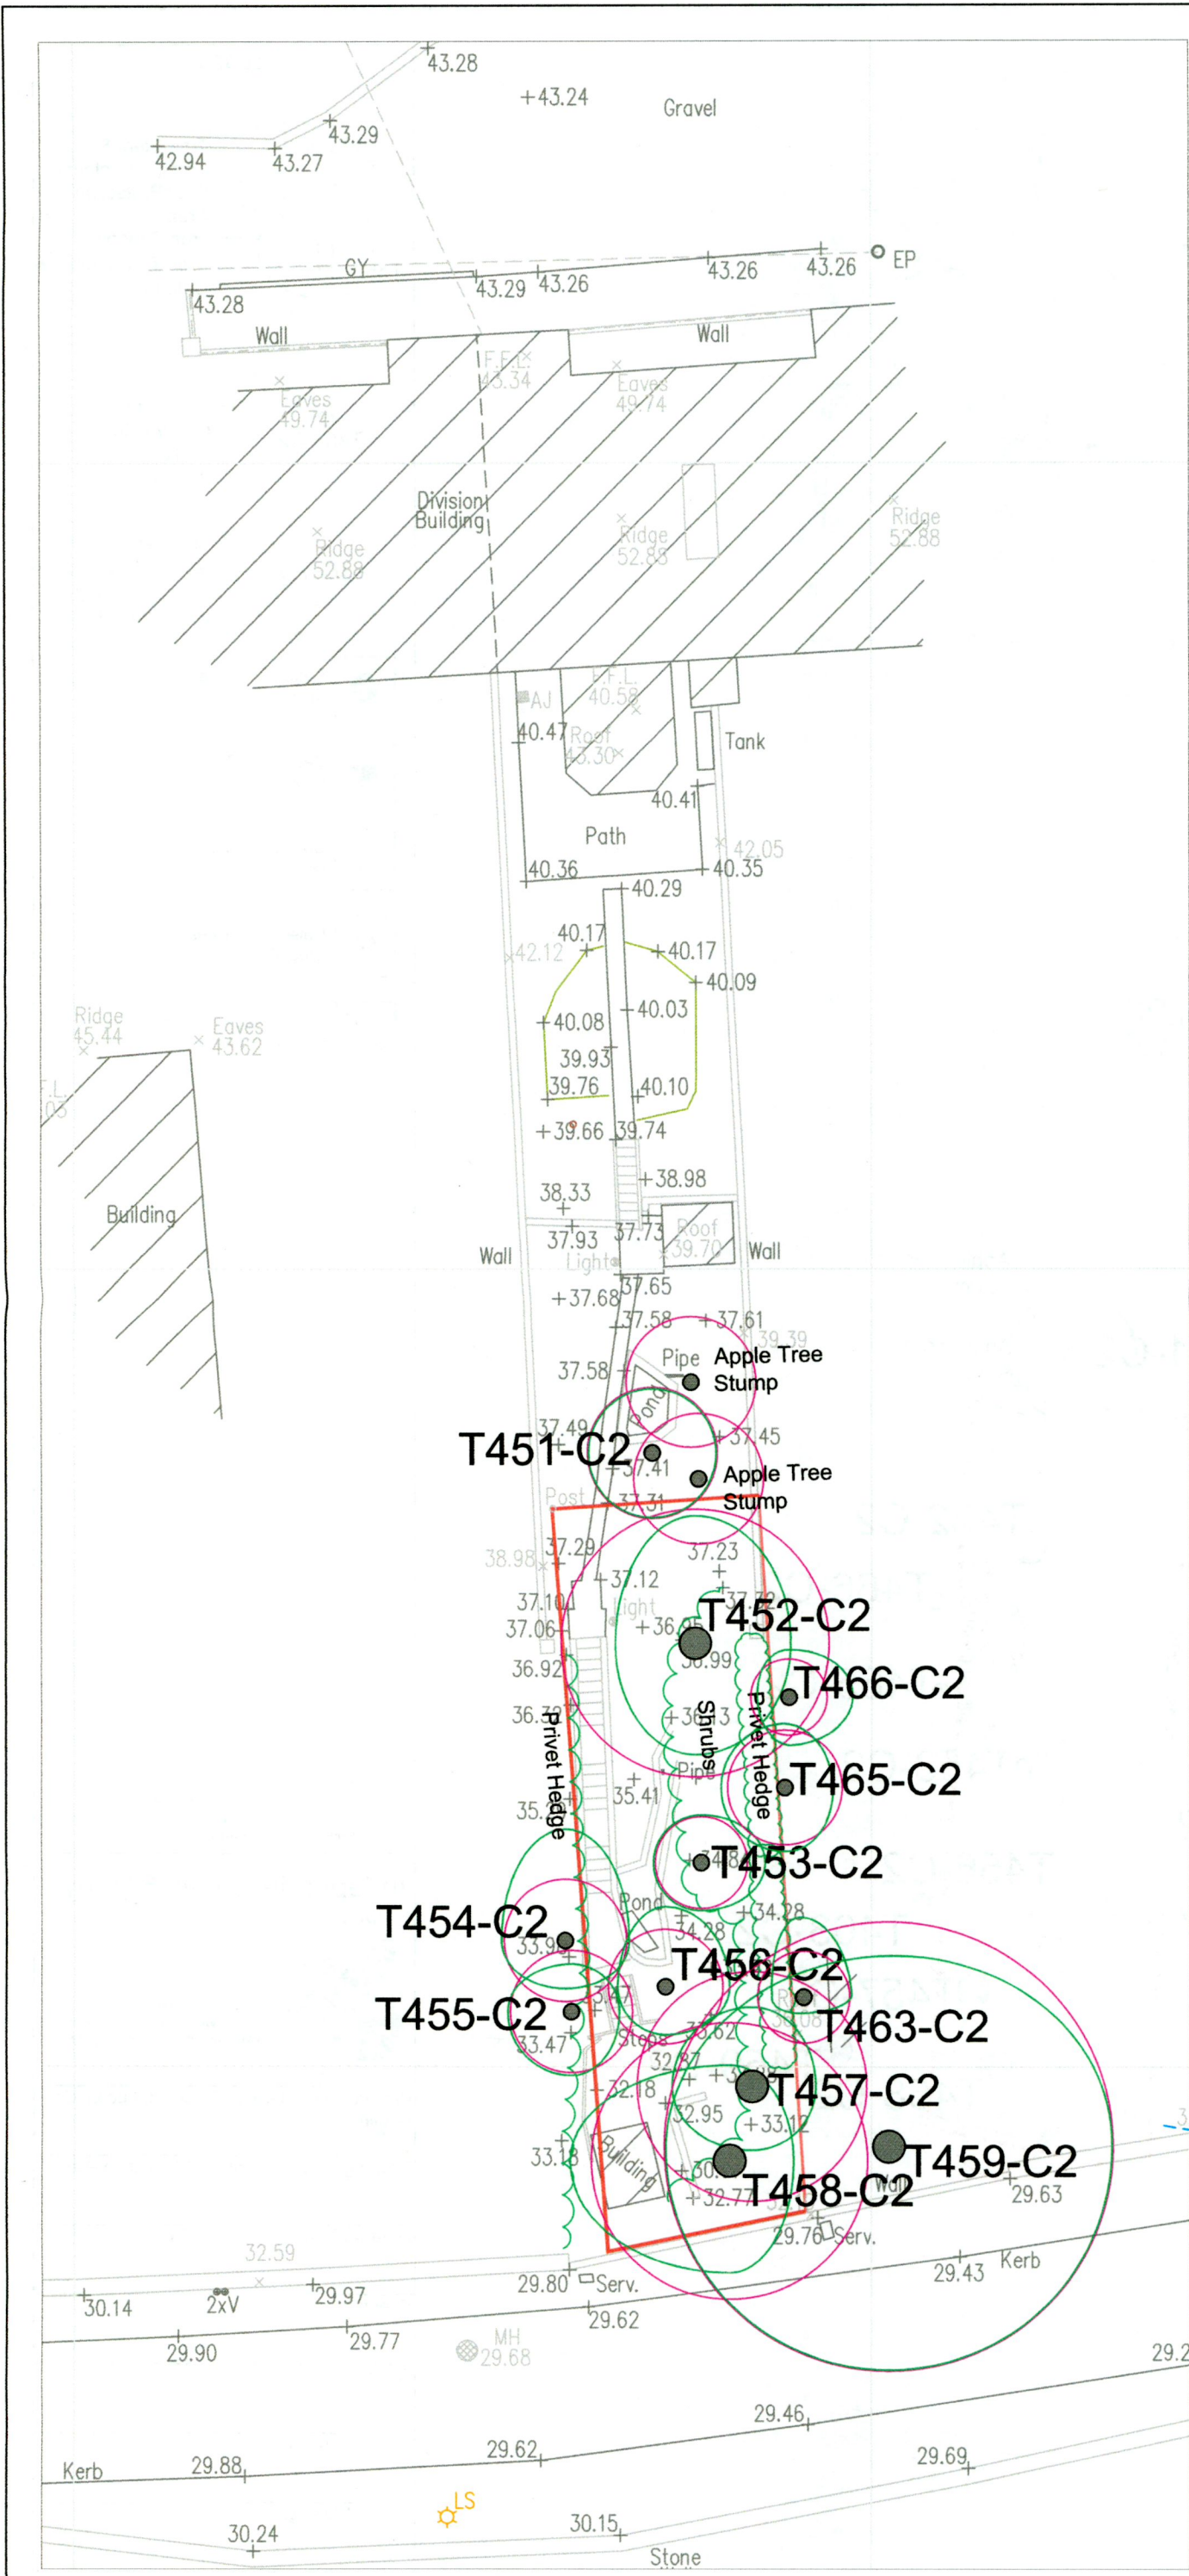 43.28
43.24
Gravel
43.29
42.94
43.27
GY
43.28
43.29
43.26
43.26
43.26
EP
Wall
Wall
F.F.L.
43.34
Eaves
49.74
Eaves
49.74
Division
Building
Ridge
52.88
Ridge
52.88
Ridge
52.88
F.F.L.
40.58
AJ
40.47
Roof
43.30
Tank
40.41
Path
42.05
40.36
40.35
40.29
40.17
42.12
40.17
40.09
40.03
40.08
39.93
39.76
40.10
39.66
39.74
Ridge
45.44
Eaves
43.62
F.L.
Building
38.98
38.33
37.93
37.73
Roof
39.70
Wall
Wall
Light
37.65
37.68
37.58
37.61
39.39
37.58
Pipe
Apple Tree
Stump
Pond
37.49
T451-C2
37.45
37.41
Apple Tree
Stump
Post
37.31
37.29
37.23
38.98
37.12
37.32
37.10
Light
T452-C2
37.06
36.95
36.99
36.92
T466-C2
36.32
36.13
Privet Hedge
Shrubs
Privet Hedge
Pipe
35.41
T465-C2
T453-C2
Pond
34.28
34.28
T454-C2
T456-C2
T455-C2
T463-C2
33.47
Steps
33.62
32.87
T457-C2
32.18
32.95
33.12
33.18
Building
T459-C2
T458-C2
Wall
32.77
29.63
29.76
Serv.
32.59
Kerb
29.43
29.80
Serv.
30.14
2xV
29.97
29.62
29.90
29.77
MH
29.68
29.2
29.46
29.62
29.88
29.69
Kerb
LS
30.24
30.15
Stone